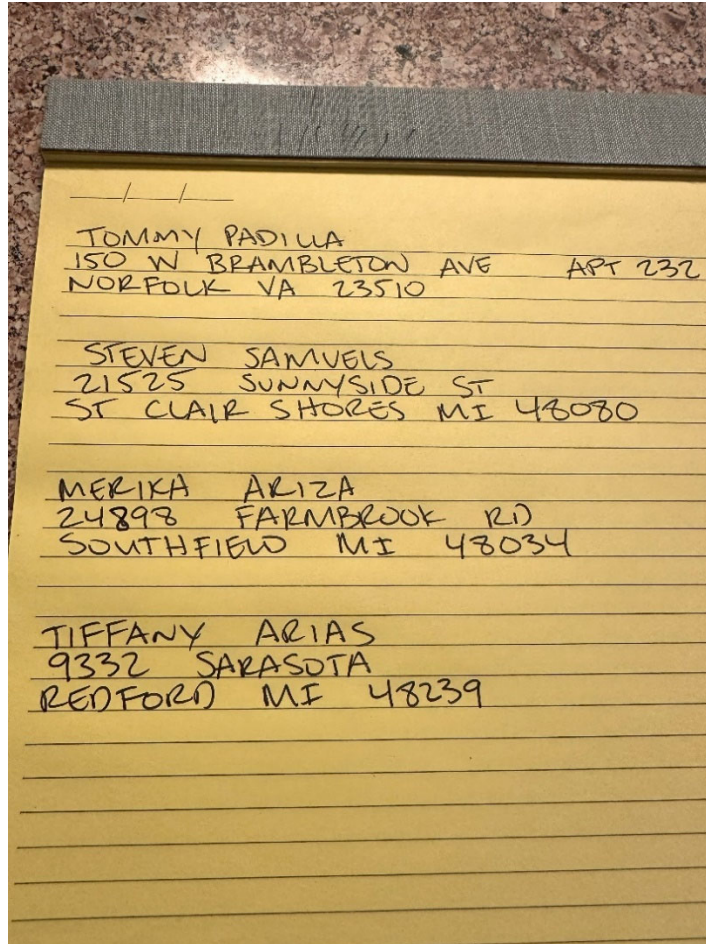 TOMMY PADILLA
150 W BRAMBLETON AVE APT 232
NORFOLK VA 23510
STEVEN SAMUELS
21525 SUNNYSIDE ST
ST CLAIR SHORES MI 48080
MERIKA ARIZA
24898 FARMBROOK RD
SOUTHFIELD MI 48034
TIFFANY ARIAS
9332 SARASOTA
REDFORD MI 48239